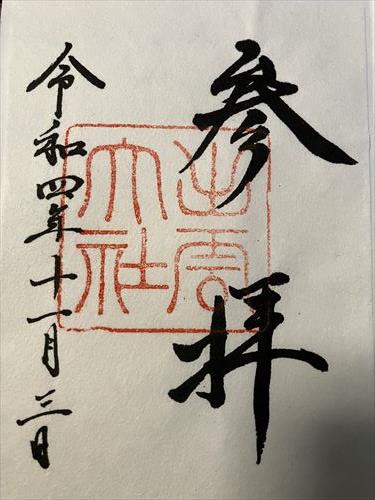 参拝
出雲
大社
令和四年十一月三日